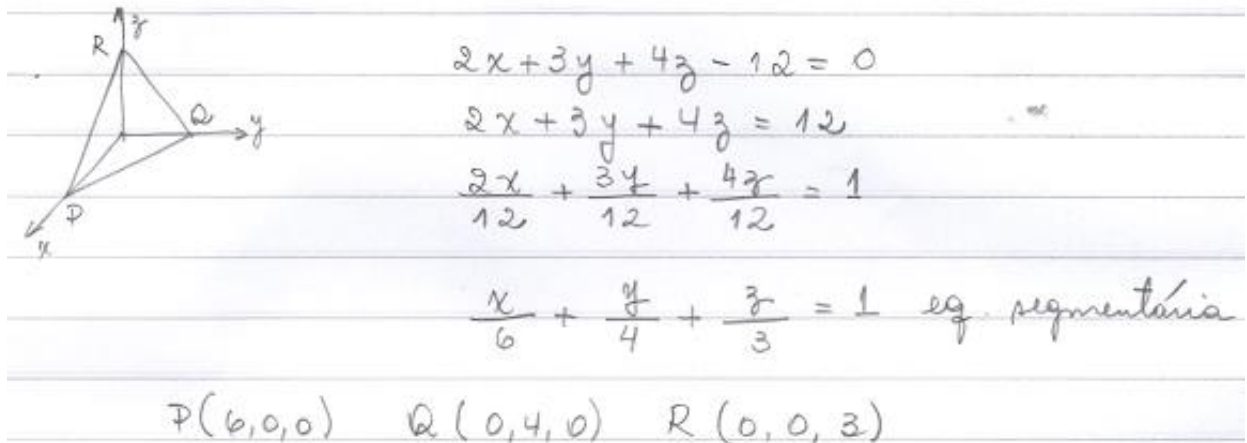 z
R
Q
y
P
x
2x + 3y + 4z - 12 = 0
2x + 3y + 4z = 12
2x/12 + 3y/12 + 4z/12 = 1
x/6 + y/4 + z/3 = 1 eq. segmentária
P(6,0,0) Q(0,4,0) R(0,0,3)